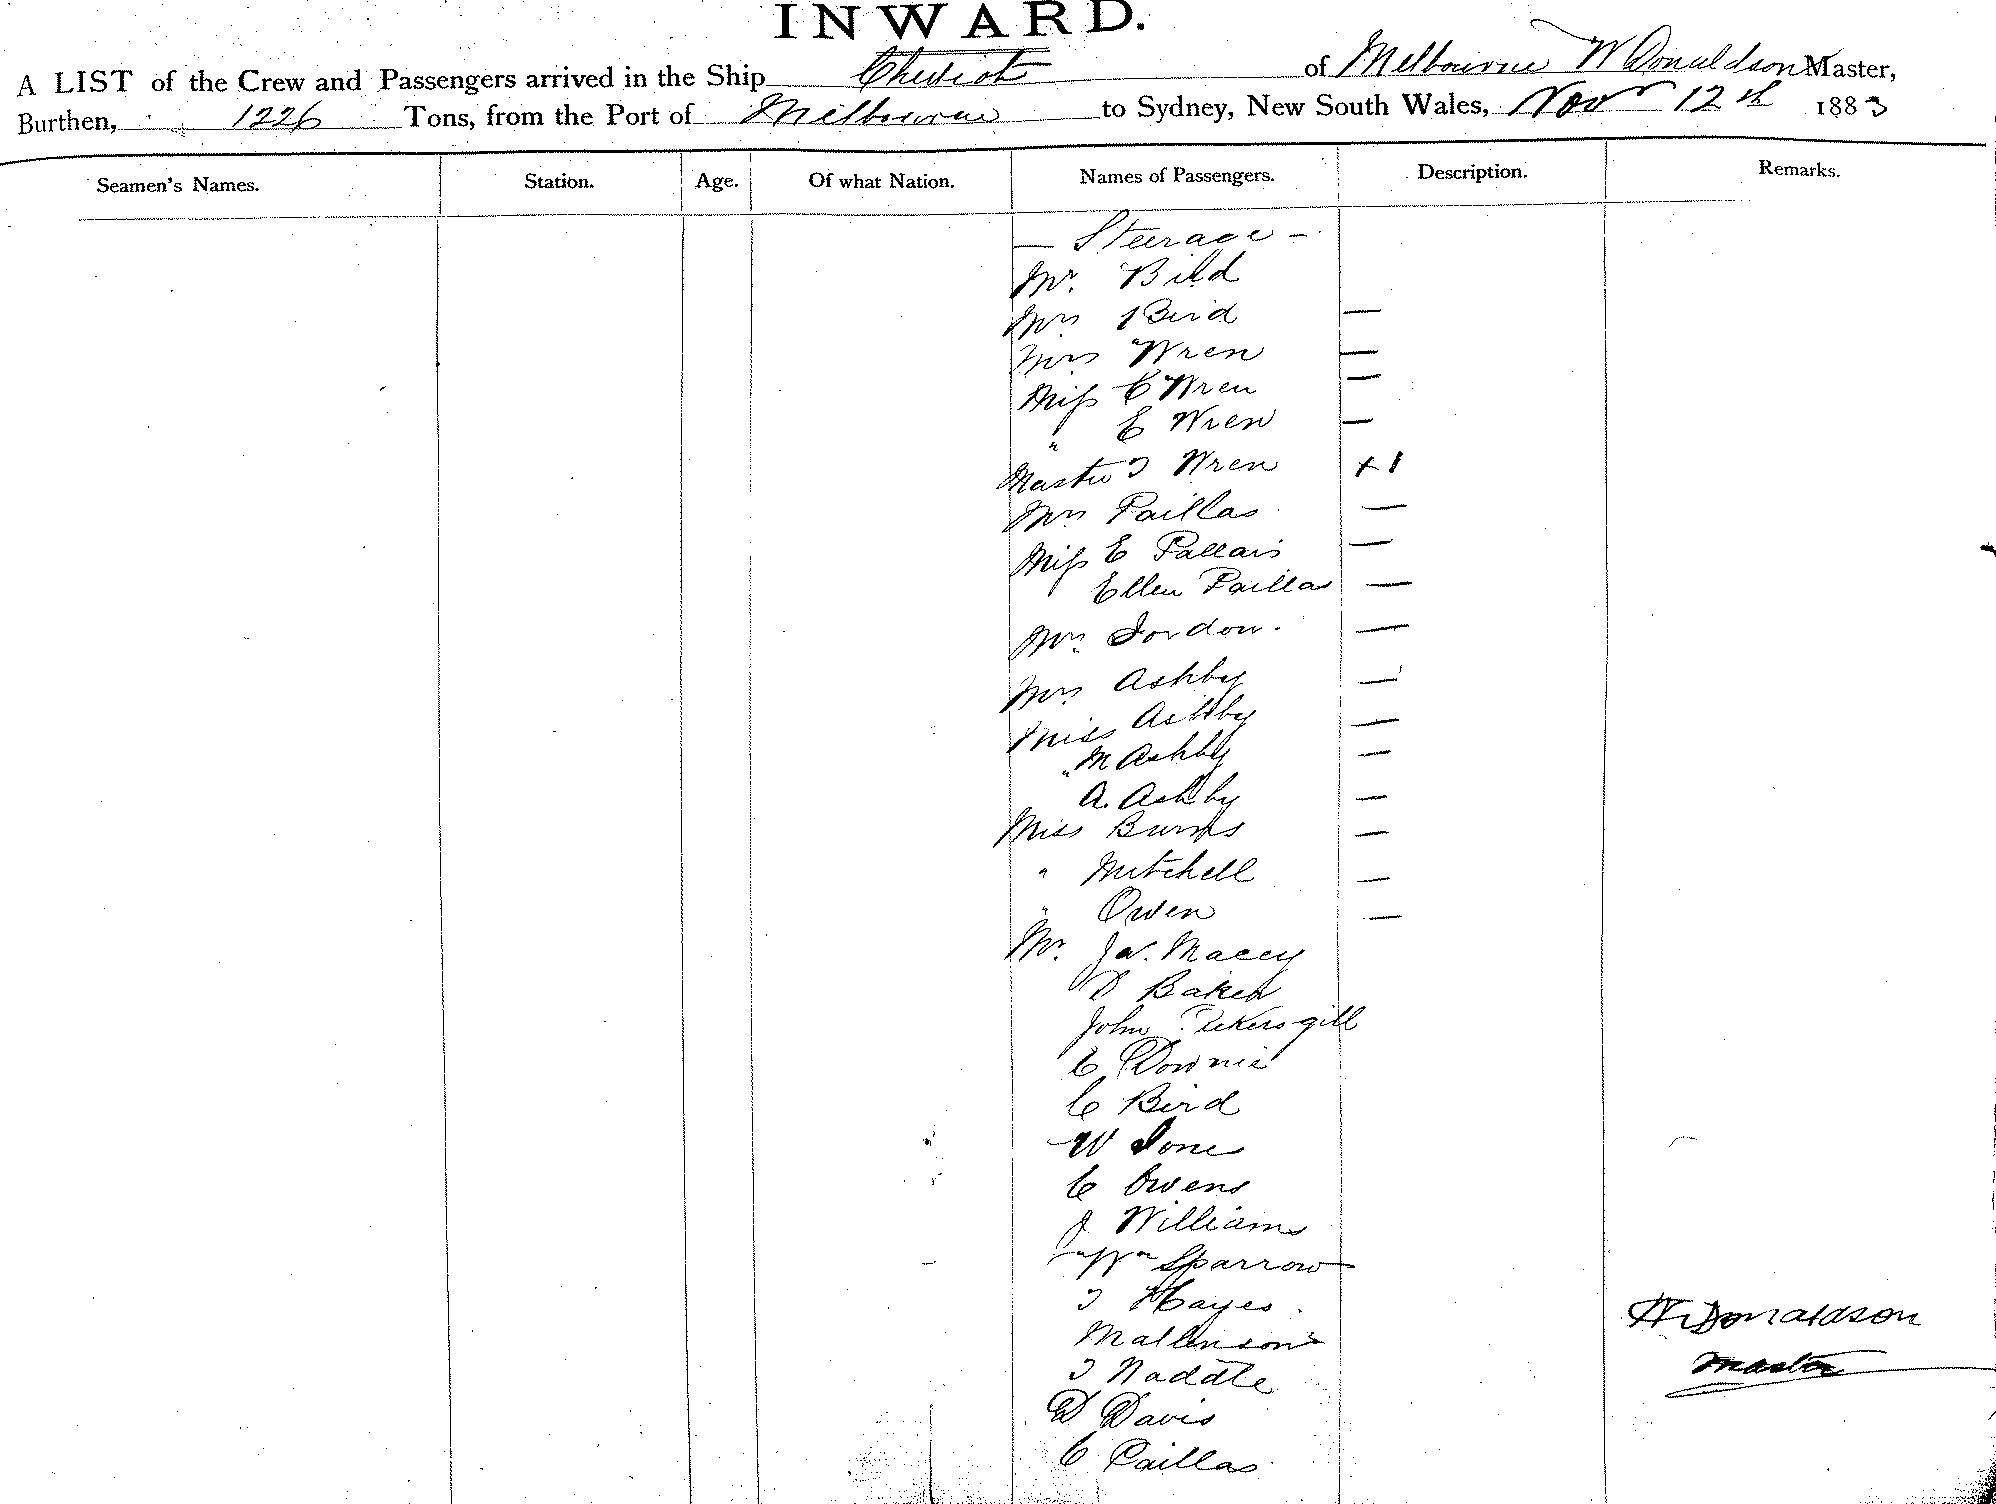 INWARD.
A LIST of the Crew and Passengers arrived in the Ship Cheviot of Melbourne W Donaldson Master,
Burthen, 1226 Tons, from the Port of Melbourne to Sydney, New South Wales, Novr 12th 1883
Seamen's Names. Station. Age. Of what Nation. Names of Passengers. Description. Remarks.
— Steerage —
Mr. Bird
Mrs Bird —
Mrs Wren —
Miss C Wren —
" E Wren —
Master T Wren + 1
Mrs Paillas —
Miss E Pallais —
Ellen Pailla —
Mrs Jordon. —
Mrs Ashby —
Miss Ashby —
" M Ashby —
A. Ashby —
Miss Burns —
" Mitchell —
" Owen —
Mr. Macey
D Baker
John Pickersgill
C Downie
C Bird
W Jone
C Owens
J Williams
Wm Sparrow
T Hayes
Mallinson
T Naddle
D Davis
C Paillas
W Donaldson
Master